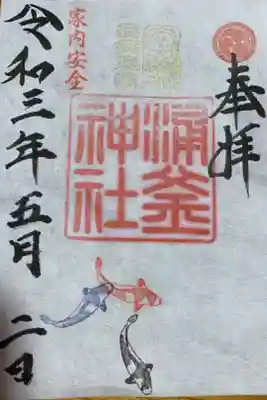 奉拝
涌釜
神社
家内安全
令和三年五月二日